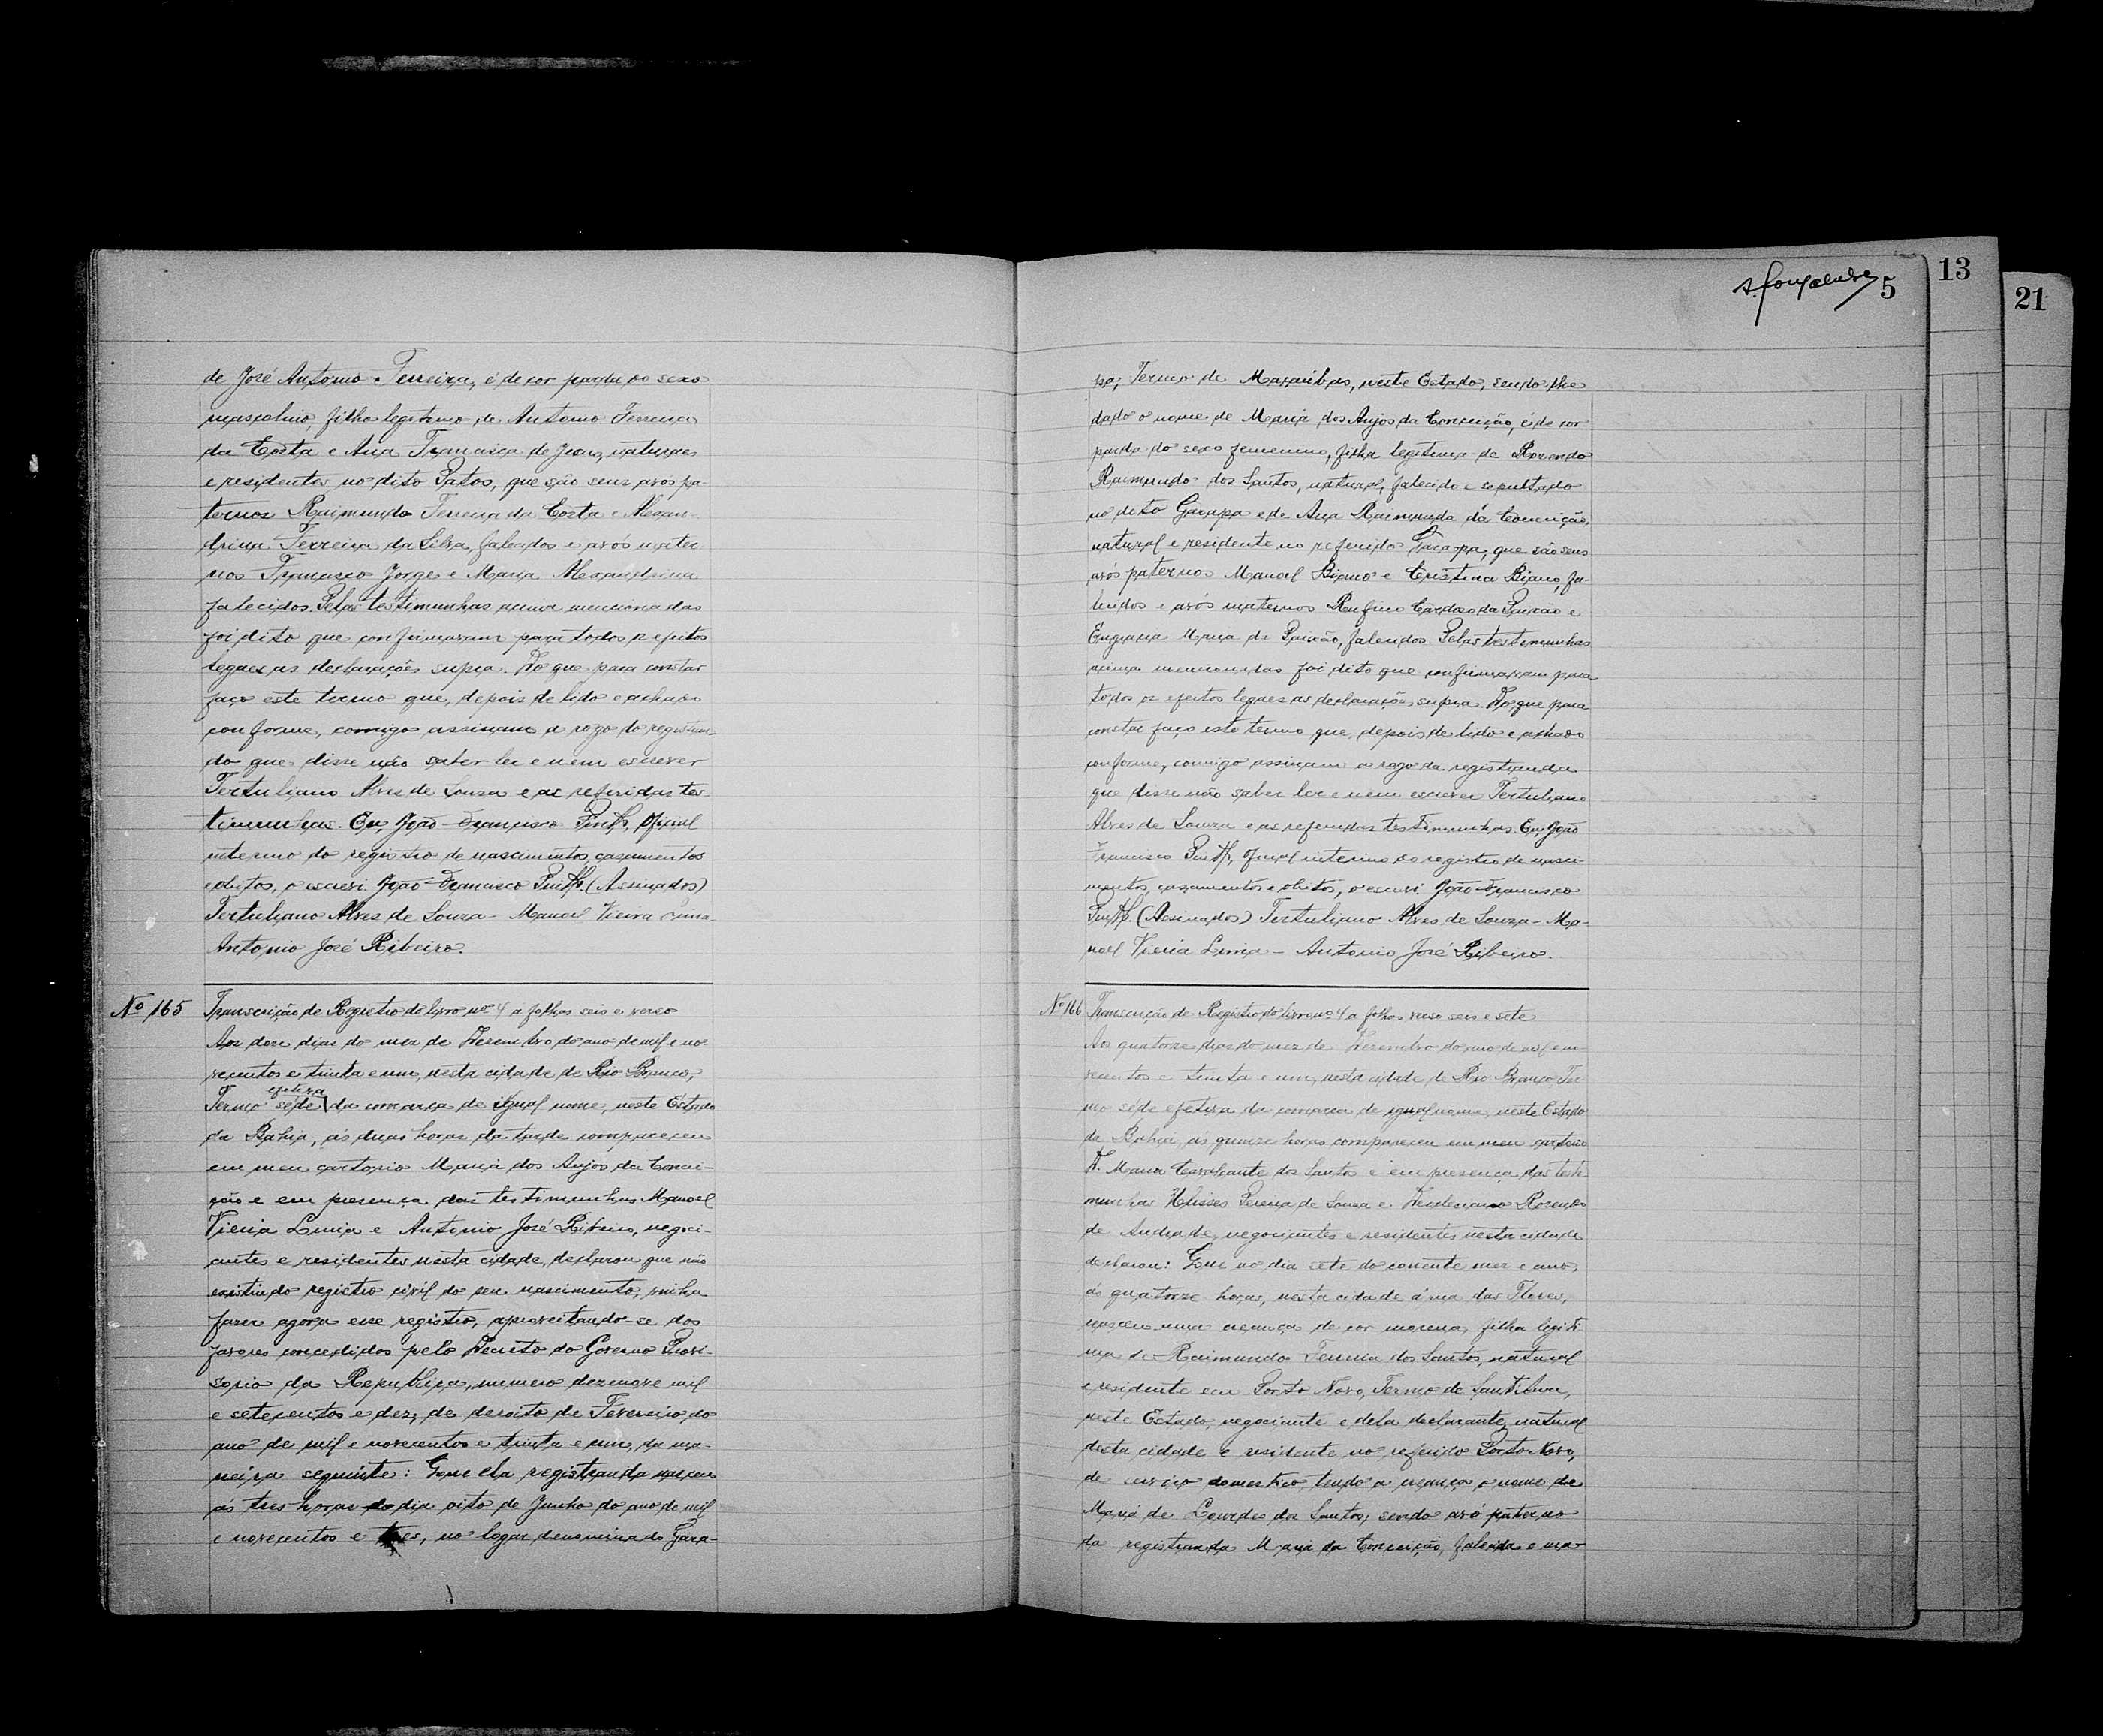 de José Antonio Ferreira, é de cor parda do sexo
masculino, filho legitimo de Antonio Ferreira
da Costa e Ana Francisca de Jesus, naturaes
e residentes no dito Patos, que são seus avós pa-
ternos Raimundo Ferreira da Costa e Alexan-
drina Ferreira da Silva, falecidos e avós mater
nos Francisco Jorge e Maria Alexandrina
falecidos. Pelas testimunhas acima mencionadas
foi dito que confirmavam para todos os efeitos
legaes as declarações supra. Do que para constar
faço este termo que, depois de lido e achado
conforme, comigo assinam a rogo do registran-
do que disse não saber ler e nem escrever
Tertuliano Alves de Souza e as referidas tes-
timunhas. Eu, João Francisco Oficial
interino do registro de nascimentos, casamentos
e obitos, o escrevi. João Francisco (Assinados)
Tertuliano Alves de Souza - Manoel Vieira Lima -
Antonio José Ribeiro.
Nº 165 Transcrição de Registro do livro nº 4 a folhas seis e verso
Aos doze dias do mez de Dezembro do ano de mil e no-
vecentos e trinta e um, nesta cidade de Rio Branco,
efetiva
Termo séde da comarca de igual nome, neste Estado
da Bahia, ás duas horas da tarde compareceu
em meu cartorio Maria dos Anjos da Concei-
ção e em presença das testimunhas Manoel
Vieira Lima e Antonio José Ribeiro, negoci-
antes e residentes nesta cidade, declarou que não
existindo registro civil do seu nascimento, vinha
fazer agora esse registro, aproveitando-se dos
favores concedidos pelo Decreto do Governo Provi-
sorio da Republica, numero dezenove mil
e setecentos e dez, de dezoito de Fevereiro do
ano de mil e novecentos e trinta e um, da ma-
neira seguinte: Que ela registranda nasceu
ás tres horas do dia oito de Junho do ano de mil
e novecentos e tres, no logar denominado Gara-
A. Gonçalves 5
13
21
pa, Termo de Macaúbas, neste Estado, sendo-lhe
dado o nome de Maria dos Anjos da Conceição, é de cor
parda do sexo femenino, filha legitima de Rozendo
Raimundo dos Santos, natural, falecido e sepultado
no dito Garapa e de Ana Raimunda da Conceição,
natural e residente no referido Garapa, que são seus
avós paternos Manoel Biano e Cristina Biano, fa-
lecidos e avós maternos Rufino Cardoso da Paixão e
Engracia Maria de Paixão, falecidos. Pelas testemunhas
acima mencionadas foi dito que confirmavam para
todos os efeitos legaes as declarações supra. Do que para
constar faço este termo que, depois de lido e achado
conforme, comigo assinam a rogo da registranda
que disse não saber ler e nem escrever Tertuliano
Alves de Souza e as referidas testimunhas. Eu, João
Francisco Oficial interino do registro de nasci-
mentos, casamentos e obitos, o escrevi João Francisco
(Assinados) Tertuliano Alves de Souza - Ma-
noel Vieira Lima - Antonio José Ribeiro.
Nº 166 Transcrição de Registro do livro nº 4 a folhas verso seis e sete
Aos quatorze dias do mez de Dezembro do ano de mil e no-
vecentos e trinta e um, nesta cidade de Rio Branco Ter-
mo séde efetiva da comarca de igual nome, neste Estado
da Bahia, ás quinze horas compareceu em meu cartorio
D. Maria Cavalcante dos Santos e em presença das testi-
munhas Ulisses Pereira de Souza e Rosendo
de Andrade, negociantes e residentes nesta cidade
declarou: Que no dia sete do corrente mez e ano,
ás quatorze horas, nesta cidade á rua das Flores,
nasceu uma criança de cor morena, filha legiti
ma de Raimundo Ferreira dos Santos, natural
e residente em Porto Novo, Termo de Sant'Ana,
neste Estado, negociante e dela declarante, natural
desta cidade e residente no referido Porto Novo,
de serviço domestico, tendo a criança o nome de
Maria de Lourdes dos Santos, sendo avó paterno
da registranda Maria da Conceição, falecida e ma-